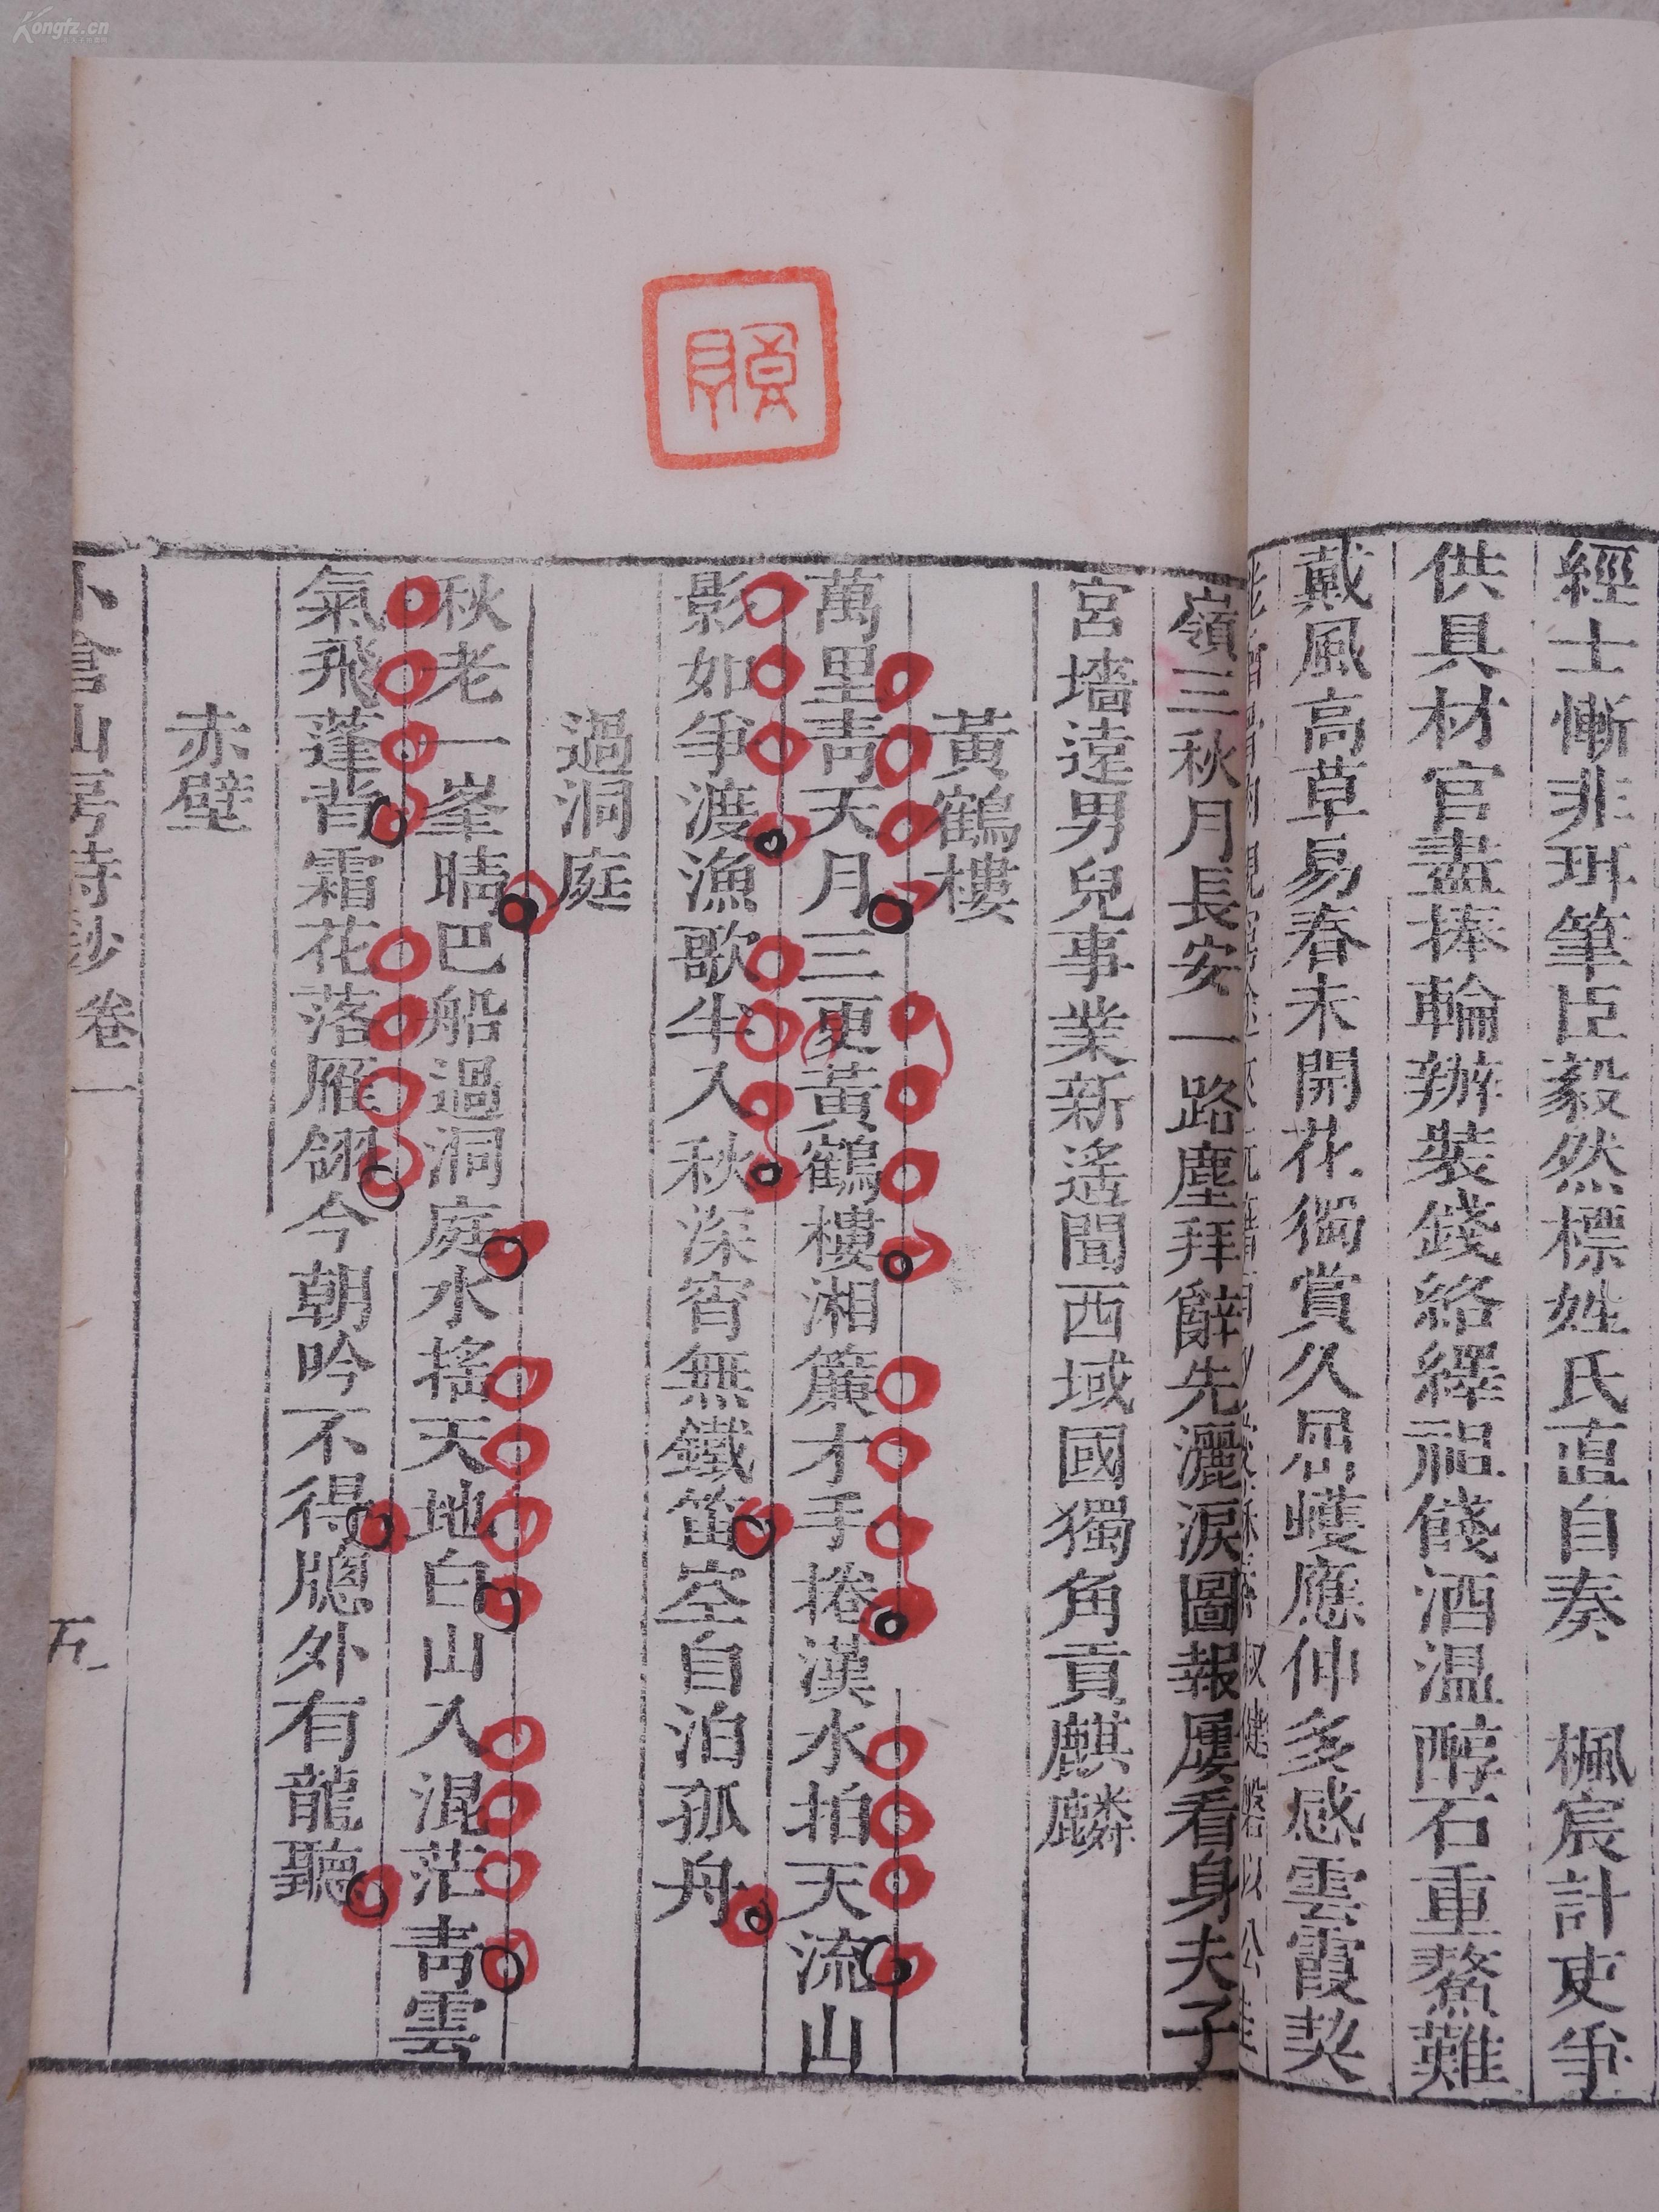 經士慚非珥筆臣毅然標姓氏直自奏　楓宸計吏爭
供具材官盡捧輪辦裝錢絡繹祖餞酒温醇石重鰲難
戴風高草易春未開花獨賞久屈蠖應伸多感雲霞契
嶺三秋月長安一路塵拜辭先灑淚圖報屢看身夫子
宮墻遠男兒事業新遙聞西域國獨角貢麒麟
黃鶴樓
萬里青天月三更黃鶴樓湘簾才手捲漢水拍天流山
影如爭渡漁歌半入秋深宵無鐵笛空自泊孤舟
過洞庭
秋老一峯晴巴船過洞庭水搖天地白山入混茫青雲
氣飛蓬背霜花落雁翎今朝吟不得牕外有龍聽
赤壁
小倉山房詩鈔卷一
五
Kongfz.cn